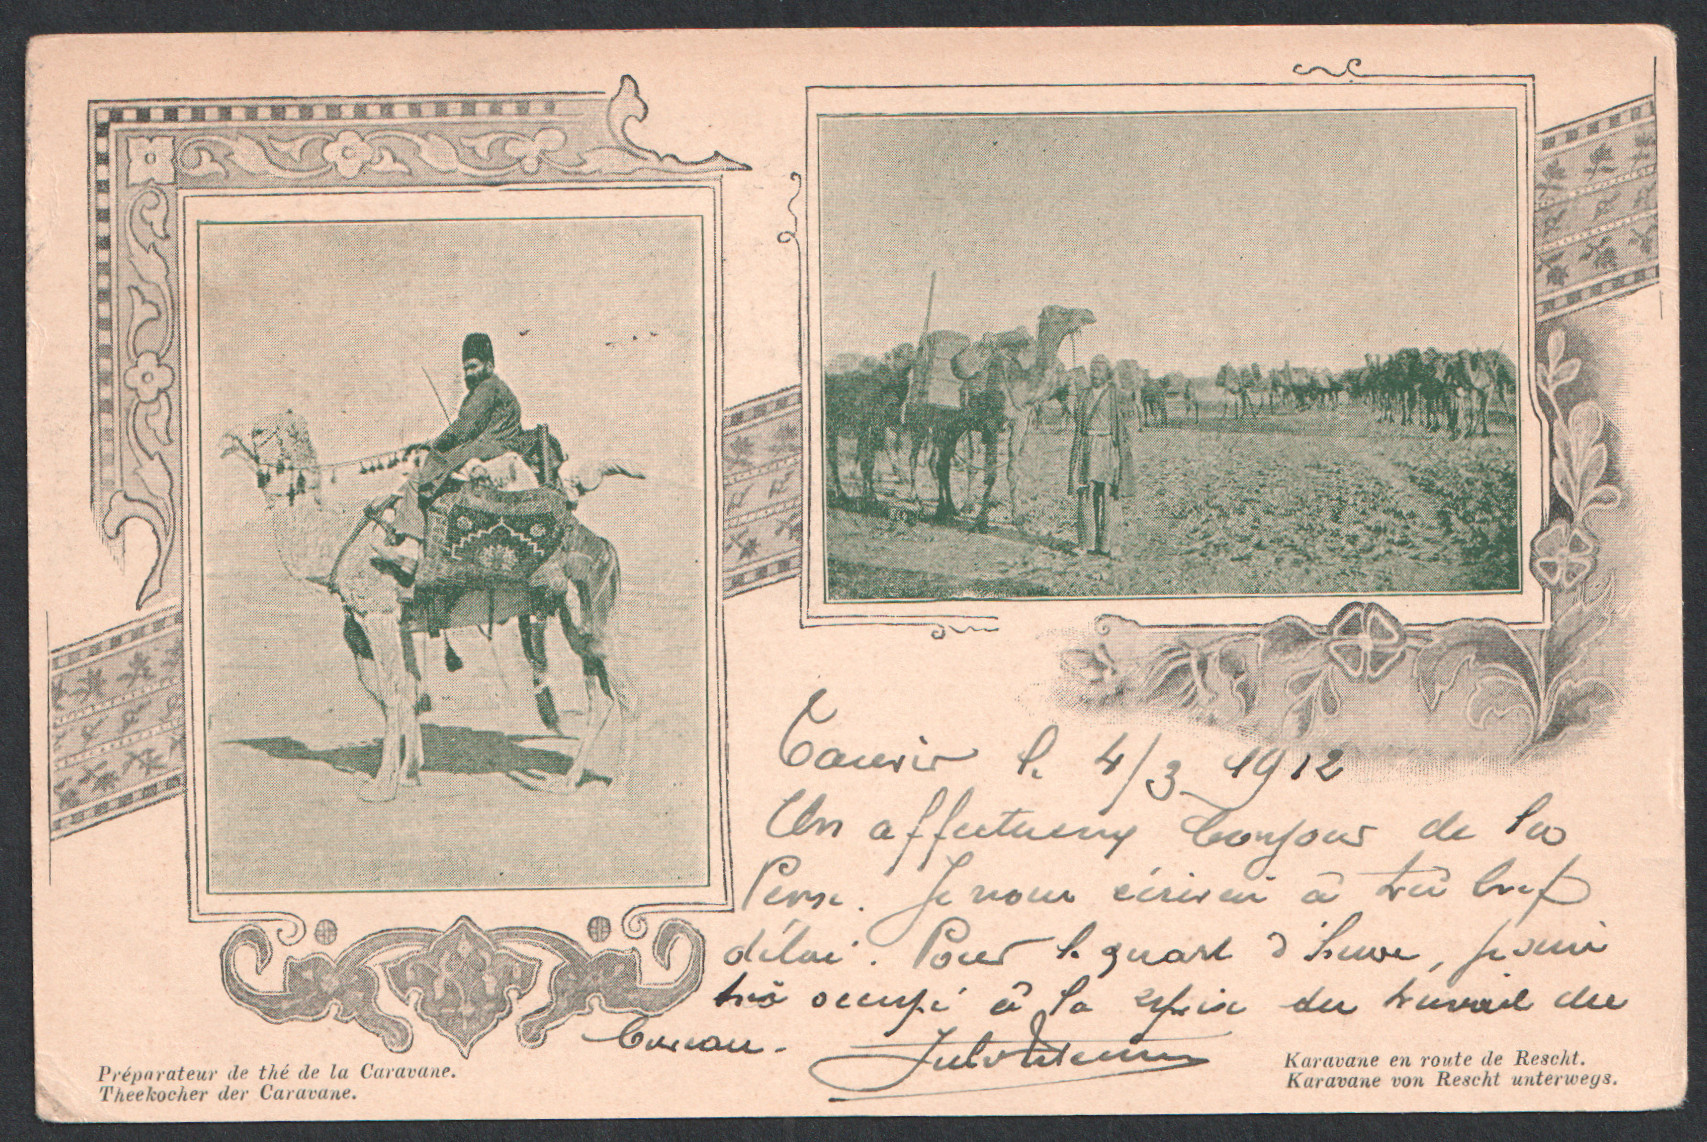 Tauris le 4/3 1912
Un affectueux bonjour de la
Perse. Je vous écrirai à très bref
délai. Pour le quart d'heure, je suis
très occupé à la du travail du
bureau.
Préparateur de thé de la Caravane.
Theekocher der Caravane.
Karavane en route de Rescht.
Karavane von Rescht unterwegs.